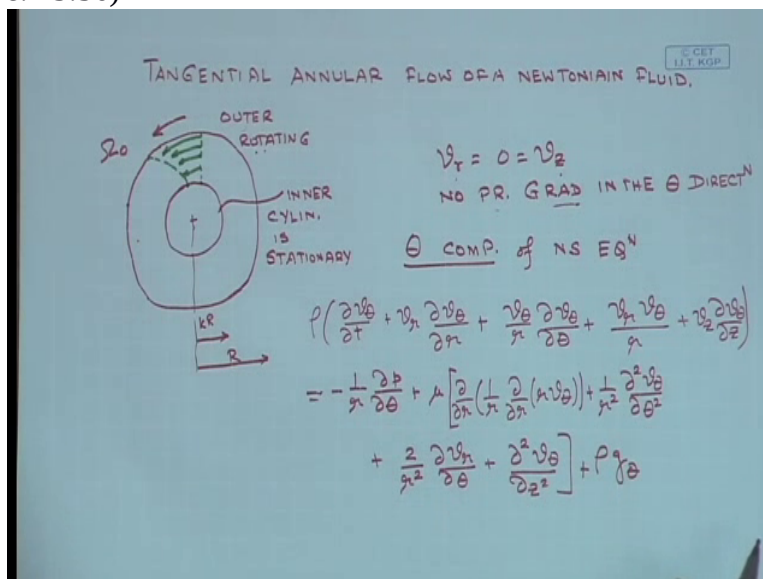 © CET
I.I.T. KGP
TANGENTIAL ANNULAR FLOW OF A NEWTONIAIN FLUID.
Ω0
OUTER
ROTATING
INNER
CYLIN.
IS
STATIONARY
kR
R
𝑣r = 0 = 𝑣z
NO PR. GRAD IN THE θ DIRECTᴺ
θ COMP. of NS EQᴺ
ρ(∂𝑣θ/∂t + 𝑣r ∂𝑣θ/∂r + 𝑣θ/r ∂𝑣θ/∂θ + 𝑣r𝑣θ/r + 𝑣z ∂𝑣θ/∂z)
= - 1/r ∂p/∂θ + μ[∂/∂r(1/r ∂/∂r(r𝑣θ)) + 1/r² ∂²𝑣θ/∂θ²
+ 2/r² ∂𝑣r/∂θ + ∂²𝑣θ/∂z²] + ρgθ